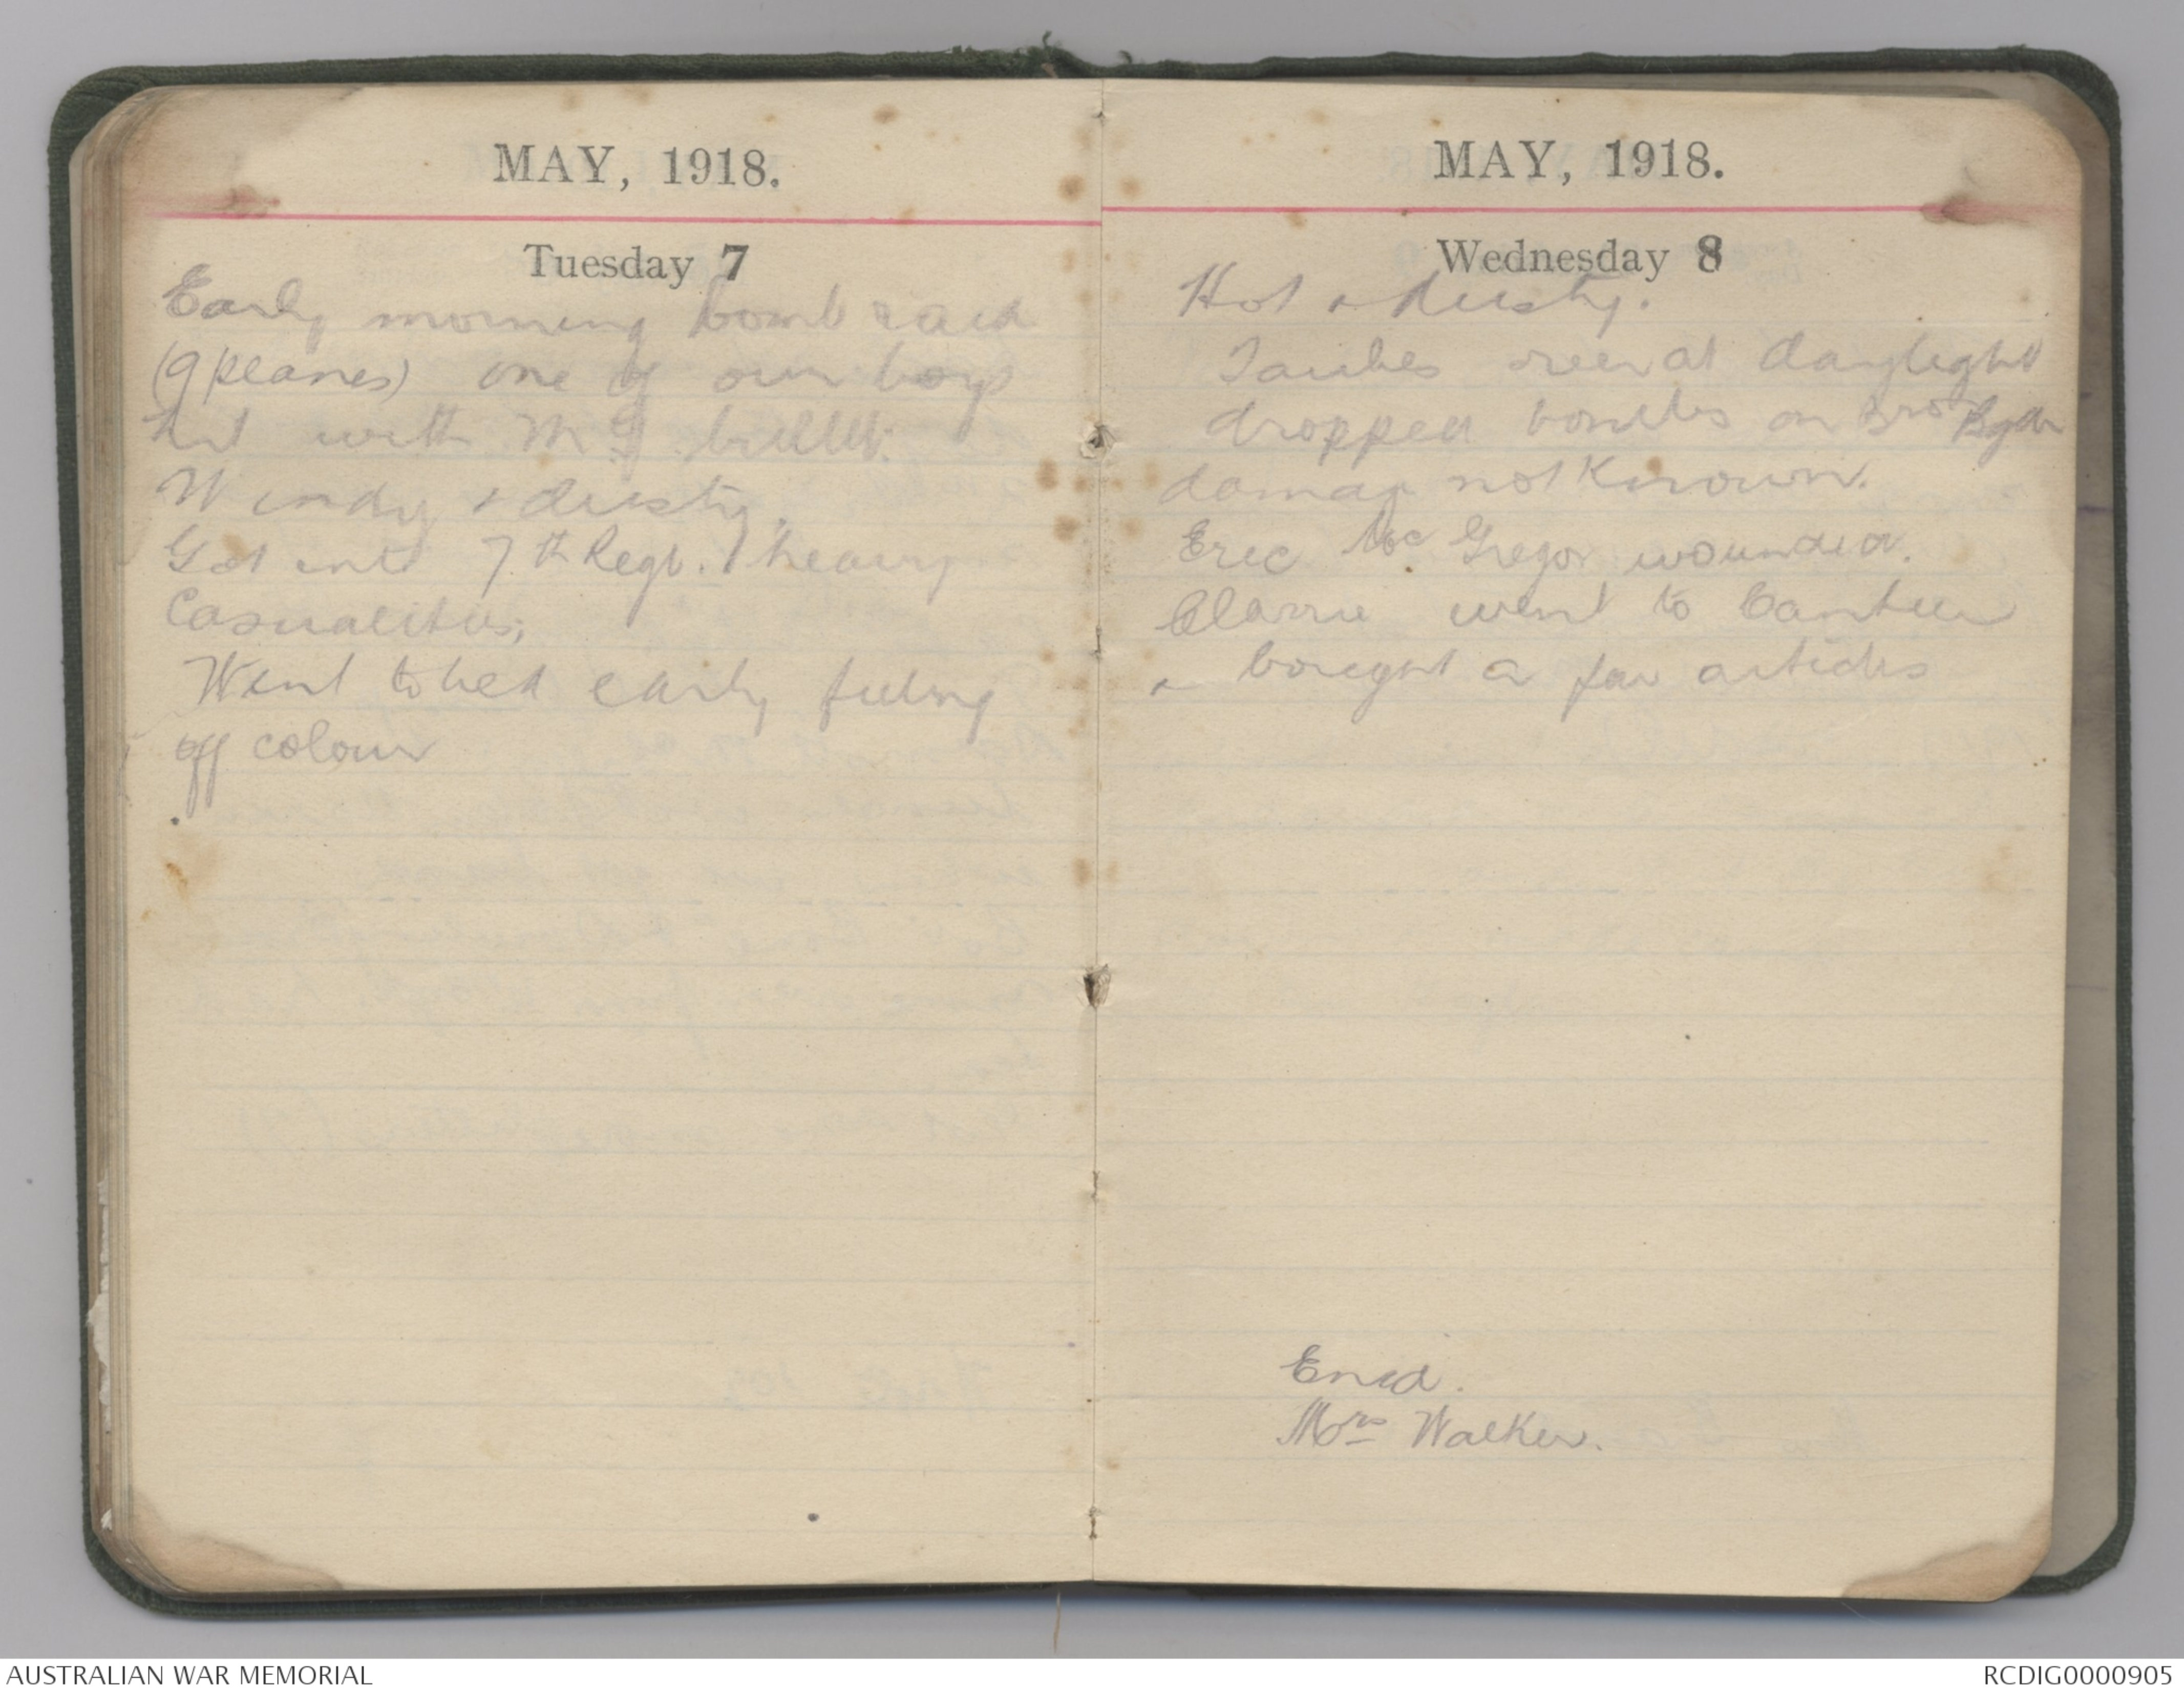 MAY, 1918.
Tuesday 7
Early morning bomb raid
(9 planes) one of our boys
hit with M G bullet.
Windy & dusty.
Got into 7th Regt. heavy
Casualities,
Went to bed early feeling
off colour
MAY, 1918.
Wednesday 8
Hot & dusty.
Taubes over at daylight
dropped bombs on 3rd Bgde
damage not known.
Eric McGregor wounded.
Clarrie went to Canteen
& bought a few articles
Enid.
Mrs Walker.
AUSTRALIAN WAR MEMORIAL
RCDIG0000905